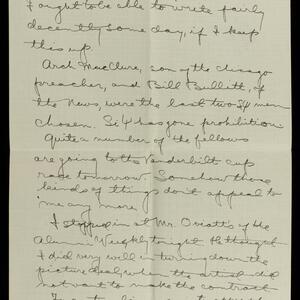 I ought to be able to write fairly
decently some day, if I keep
this up.
Arch MacClure, son of the Chicago
preacher, and Bill Bullitt, of
the News, were the last two S4 men
chosen. Si 4 has gone prohibition.
Quite a number of the fellows
are going to the Vanderbilt cup
race tomorrow. Somehow those
kinds of things don't appeal to
me any more.
I stopped in at Mr. Oviatt's of the
Alumni Weekly tonight. He thought
I did very well in turning down the
picture deal, when the artist did
not want to make the contract